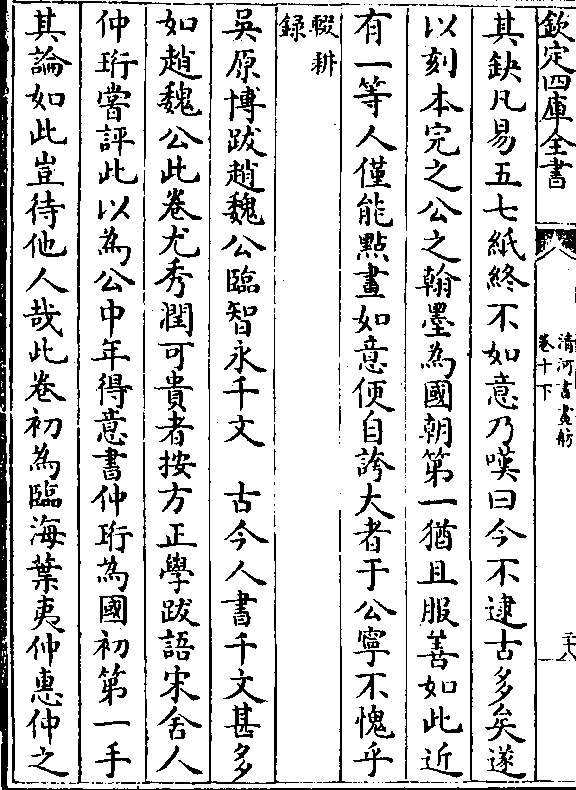 欽定四庫全書
清河書畫舫
卷十下
二十八
其缺凡易五七紙終不如意乃嘆曰今不逮古多矣遂
以刻本完之公之翰墨為國朝第一猶且服善如此近
有一等人僅能點畫如意便自誇大者于公寧不愧乎
輟耕
録
吳原博跋趙魏公臨智永千文　古今人書千文甚多
如趙魏公此卷尤秀潤可貴者按方正學跋語宋舍人
仲珩嘗評此以為公中年得意書仲珩為國初第一手
其論如此豈待他人哉此卷初為臨海葉夷仲惠仲之